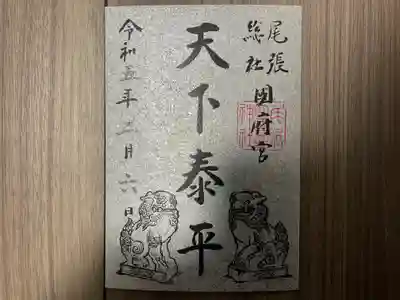 尾張
総社
国府宮
天下泰平
令和五年二月六日